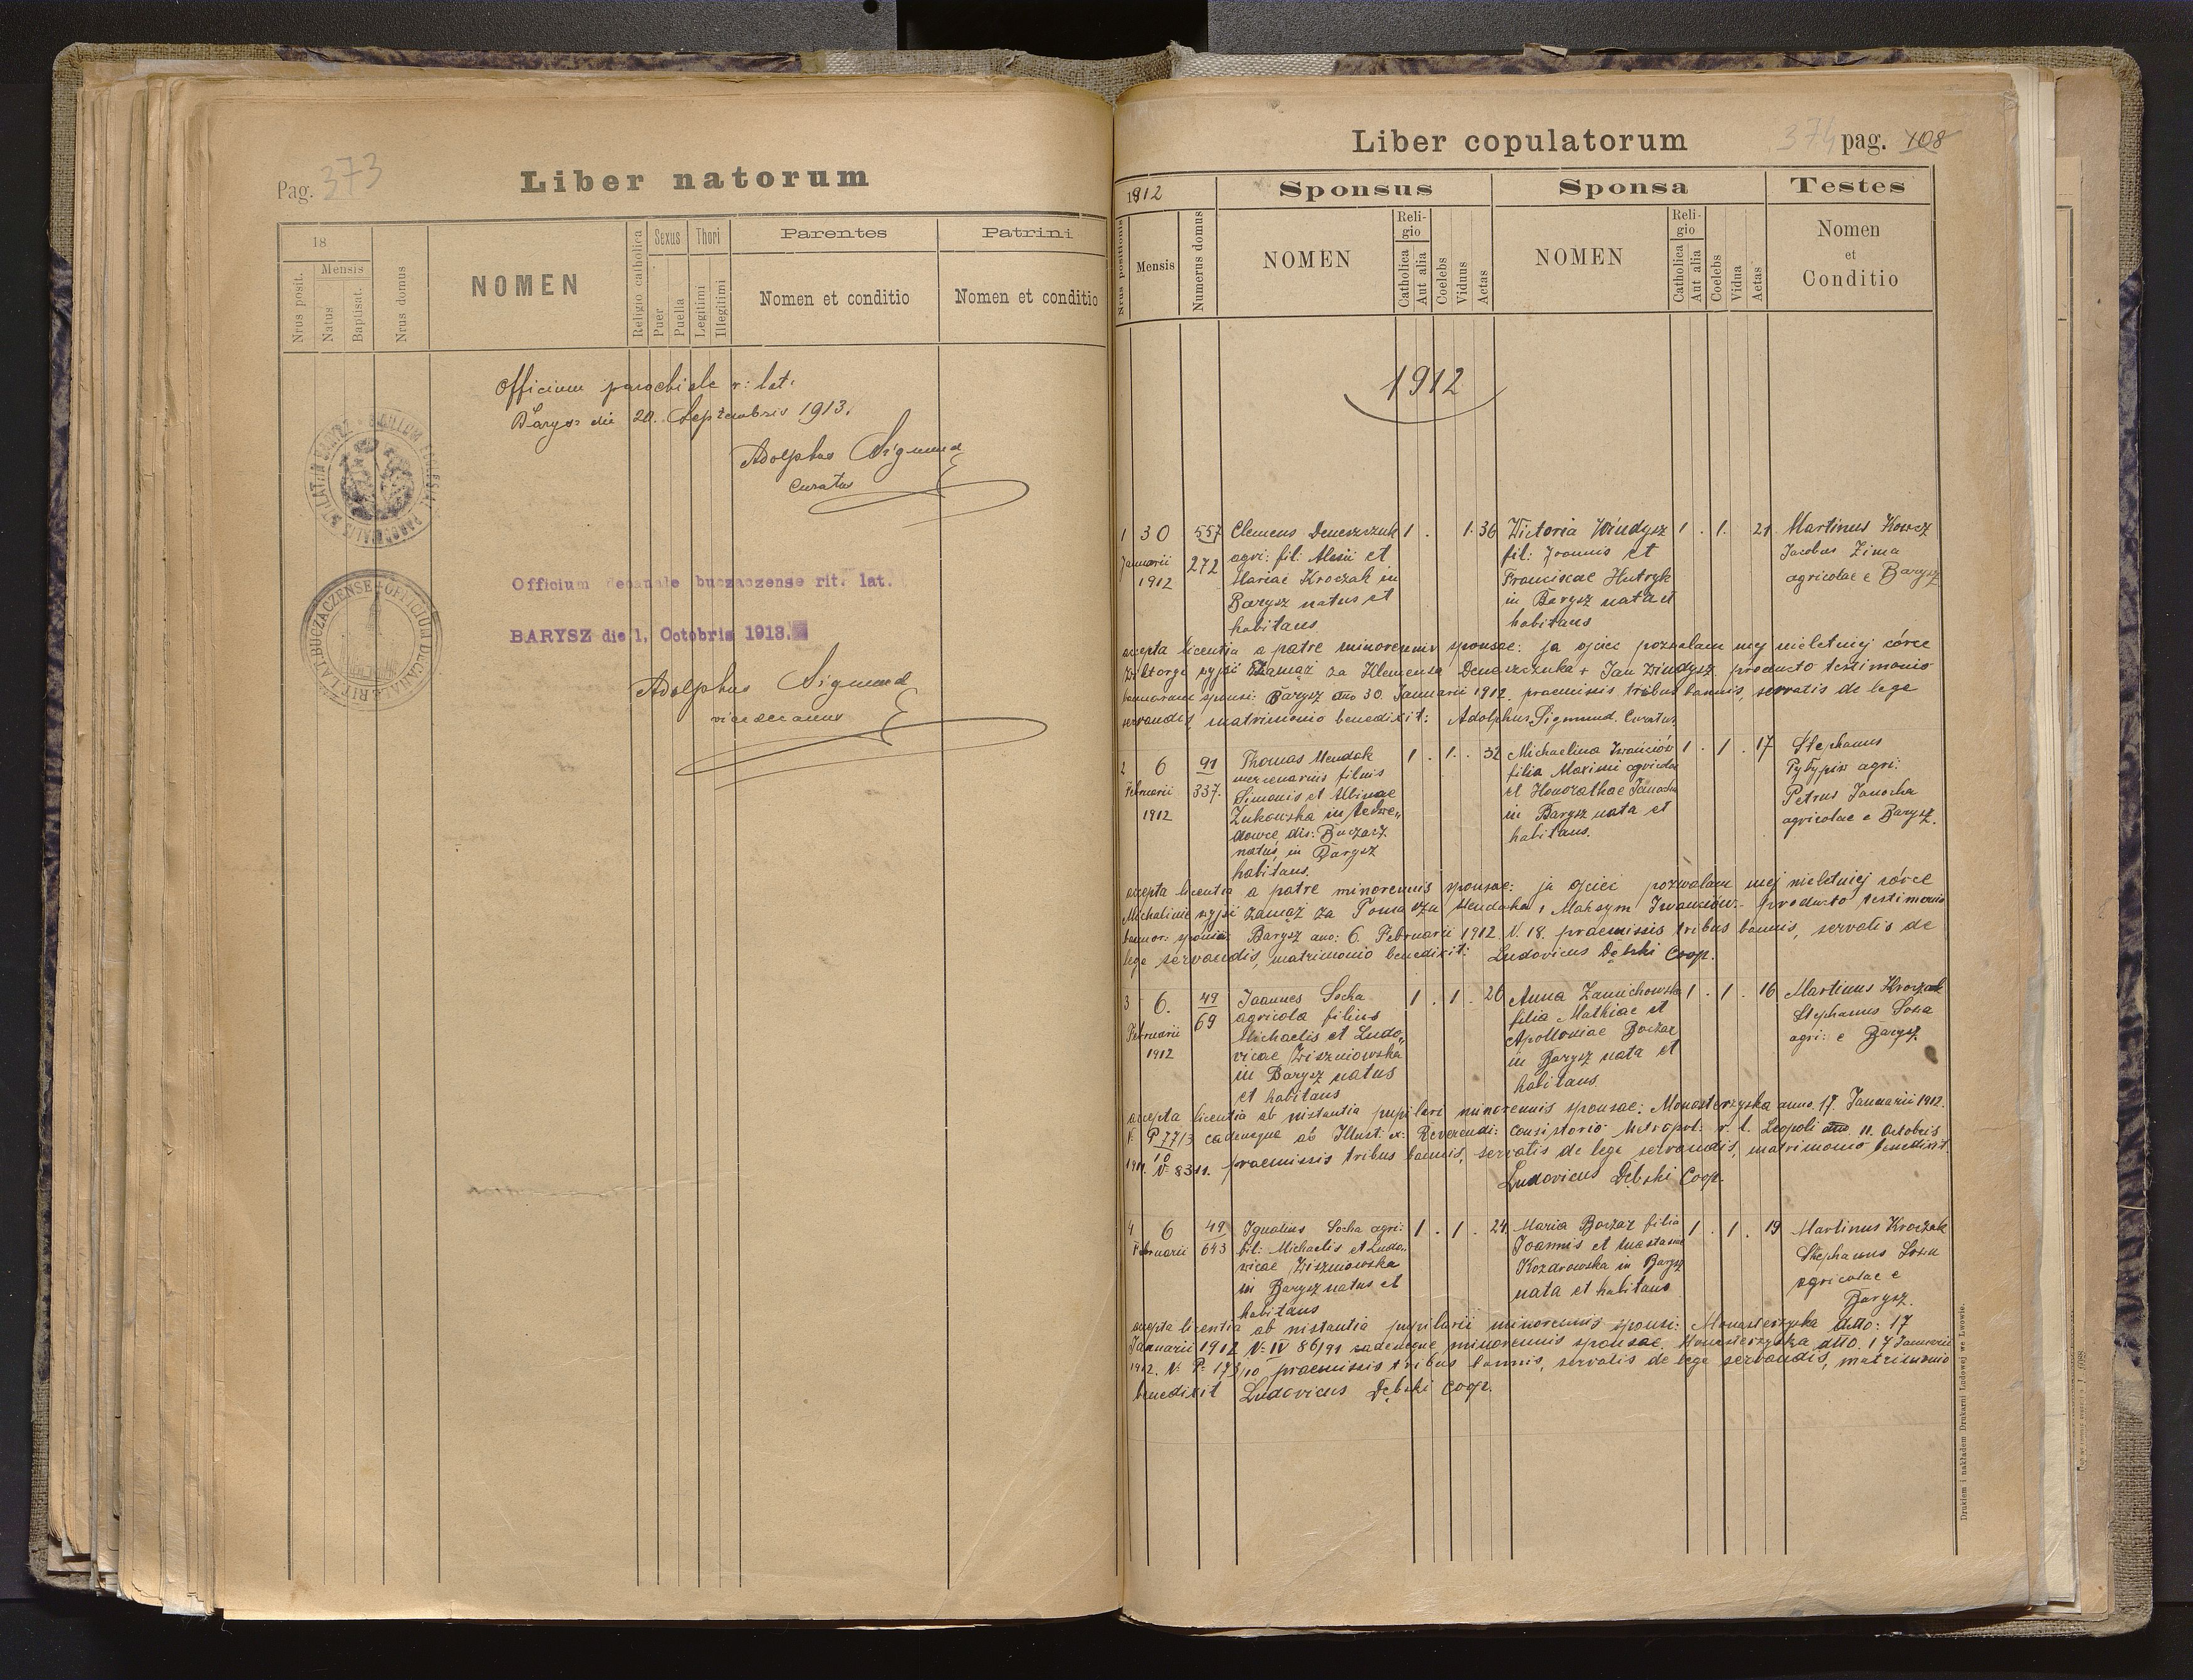 Pag. 373
Liber natorum
18
Mensis
Nrus posit.
Natus
Baptisat.
Nrus domus
NOMEN
Religio catholica
Sexus
Puer
Puella
Thori
Legitimi
Illegitimi
Parentes
Nomen et conditio
Patrini
Nomen et conditio
Officium parochiale r: lat:
Barysz die 20. Septembris 1913.
Adolphus Sigmund
Curatus
Officium decanale buczaczense rit. lat.
BARYSZ die 1. Octobris 1913.
Adolphus Sigmund
vicedecanus
Liber copulatorum
374 pag. 108
1912
Sponsus
Sponsa
Testes
Nrus positionis
Mensis
Numerus domus
NOMEN
Religio
Catholica
Aut alia
Coelebs
Viduus
Aetas
NOMEN
Religio
Catholica
Aut alia
Coelebs
Vidua
Aetas
Nomen
et
Conditio
1912
1 30 Januarii 1912
557
272
Clemens Deneszczuk
agri: fil: Alexii et
Mariae Kroczak in
Barysz natus et
habitans
1 . 1. 36
Wictoria Windysz
fil: Joannis et
Franciscae Hutryk
in Barysz nata et
habitans
1 . 1. 21
Martinus Kowcz
Jacobus Zima
agricolae e Barysz
accepta licentia a patre minorennis sponsae: ja ojciec pozwalam mej nieletniej córce
Wiktoryi wyjść zamąż za Klemensa Deneszczuka + Jan Windysz, producto testimonio
bannorum sponsi: Barysz dtto 30 Januarii 1912, praemissis tribus bannis, servatis de lege
servandis, matrimonio benedixit: Adolphus Sigmund. Curatus
2 6 Februarii 1912
91
337.
Thomas Mendak
mercenarius filius
Simonis et Albinae
Żukowska in Medwe„
dowce, dis: Buczacz
natus, in Barysz
habitans.
1 . 1. . 32
Michaelina Iwanciów
filia Maximi agricolae
et Honorathae Janocha
in Barysz nata et
habitans.
1 . 1 . 17
Stephanus
Pyłypiw agri:
Petrus Janocha
agricolae e Barysz.
accepta licentia a patre minorennis sponsae: ja ojciec pozwalam mej nieletniej córce
Michalinie wyjść zamąż za Tomasza Mendaka, Maksym Iwanciów. Producto testimonio
bannor: sponsi: Barysz ano: 6. Februarii 1912 N. 18. praemissis tribus bannis, servatis de
lege servandis, matrimonio benedixit: Ludovicus Dębski Coop.
3 6. Februarii 1912
49
69
Joannes Socha
agricola filius
Michaelis et Ludo„
vicae Wiszniowska
in Barysz natus
et habitans
1 . 1 . 26
Anna Zanichowska
filia Mathiae et
Apolloniae Boczar
in Barysz nata et
habitans
1 . 1 . 16
Martinus Kroczak
Stephanus Sosna
agri: e Barysz.
accepta licentia ab instantia pupilari minorennis sponsae: Monasterzyska anno. 17. Januarii 1912.
N. P 77/3 eademque ab Illust: et: Reverendi: Consistorio Metropol: r. l. Leopoli dtto. 11. Octobris
1911. N: 8311. praemissis tribus bannis, servatis de lege servandis, matrimonio benedixit.
Ludovicus Dębski Coop.
4 6 Februarii
49
643
Ignatius Socha agri:
fil: Michaelis et Ludo„
vicae Wiszniowska
in Barysz natus et
habitans
1 . 1 . 24.
Maria Boczar filia
Joannis et Anastasiae
Kozdrowska in Barysz
nata et habitans
1 . 1 . 19
Martinus Kroczak
Stephanus Sosna
agricolae e
Barysz.
accepta licentia ab instantia pupilarii minorennis sponsi: Monasterzyska dtto: 17
Januarii 1912 N: IV 86/91 eademque minorennis sponsae. Monasterzyska dtto. 17 Januarii
1912. N: P. 178/10 praemissis tribus bannis, servatis de lege servandis, matrimonio
benedixit Ludovicus Dębski Coop.
Drukiem i nakładem Drukarni Ludowej we Lwowie.